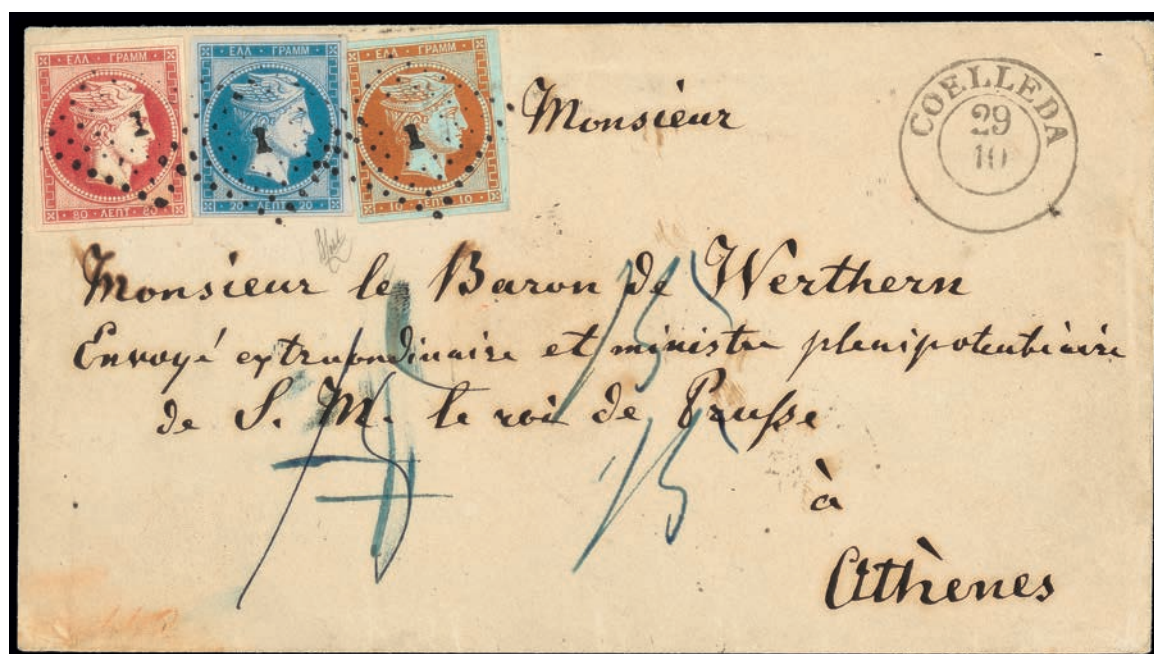 ΕΛΛ · ΓΡΑΜΜ
80 · ΛΕΠΤ · 80
1
ΕΛΛ · ΓΡΑΜΜ
20 · ΛΕΠΤ · 20
1
ΕΛΛ · ΓΡΑΜΜ
10 · ΛΕΠΤ · 10
1
COELLEDA
29
10
Monsieur
Monsieur le Baron de Werthern
Envoyé extraordinaire et ministre plenipotentiaire
de S. M. le roi de Prusse
à
Athènes